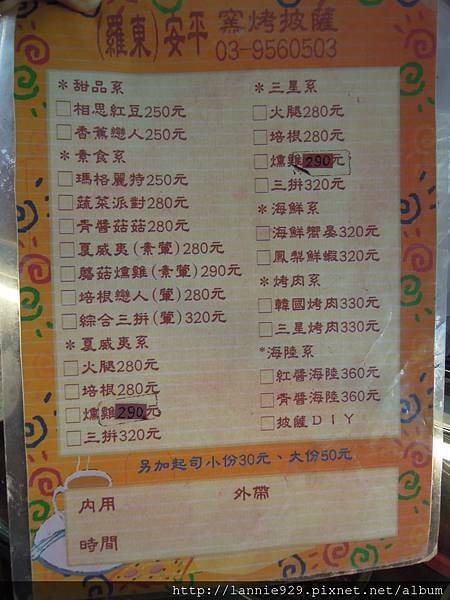 (羅東)安平 窯烤披薩
03-9560503
*甜品系
相思紅豆250元
香蕉戀人250元
*素食系
瑪格麗特250元
蔬菜派對280元
青醬菇菇280元
夏威夷(素葷)280元
蘑菇燻雞(素葷)290元
培根戀人(葷)280元
綜合三拼(葷)320元
*夏威夷系
火腿280元
培根280元
燻雞290元
三拼320元
*三星系
火腿280元
培根280元
燻雞290元
三拼320元
*海鮮系
海鮮磿菇320元
鳳梨鮮蝦320元
*烤肉系
韓國烤肉330元
三星烤肉330元
*海陸系
紅醬海陸360元
青醬海陸360元
披薩DIY
另加起司小份30元、大份50元
內用 外帶
時間
http://lannie929.pixnet.net/album